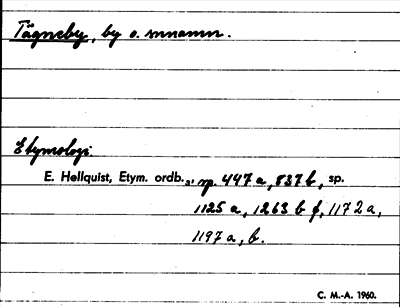 Tägneby, by o. snnamn.
Etymologi.
E. Hellquist, Etym. ordb.₃, sp. 447 a, 837 b, sp.
1125 a, 1263 b f, 1172 a,
1197 a, b.
C. M.-A. 1960.